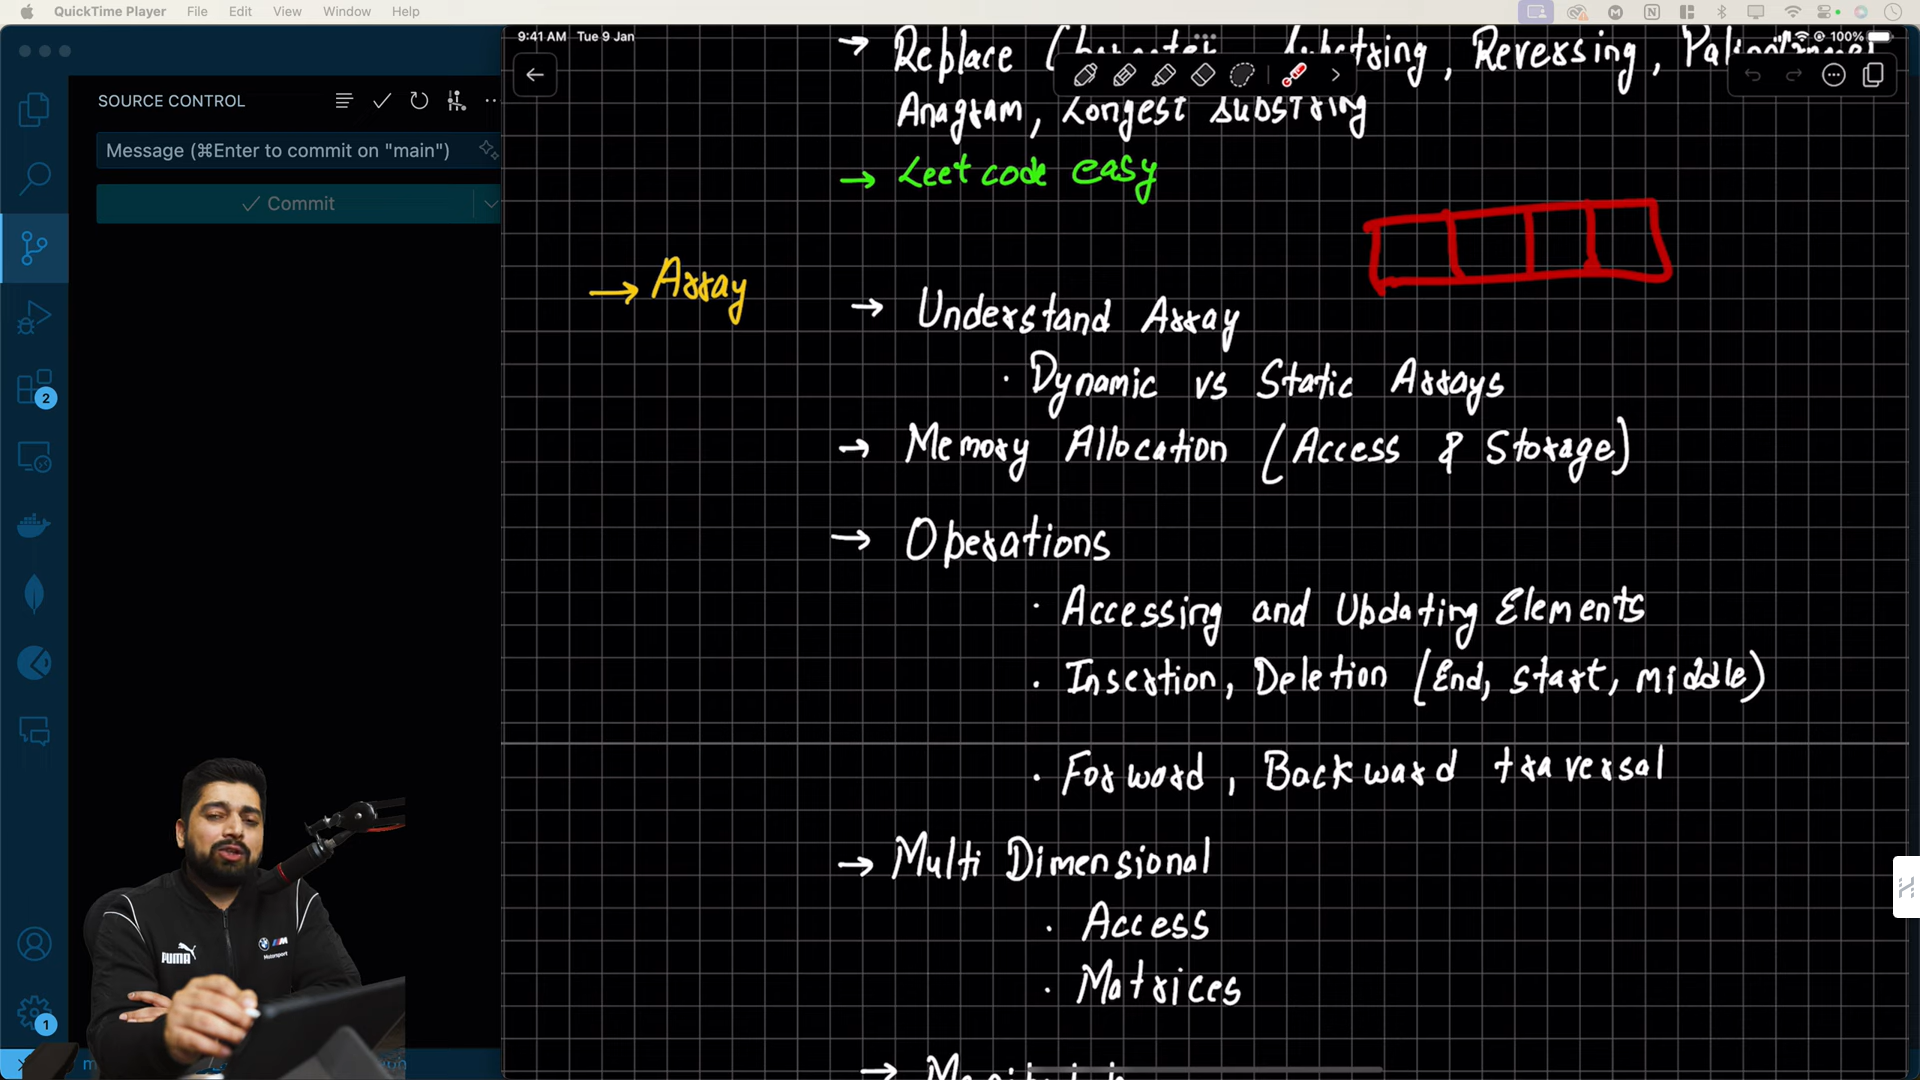 QuickTime Player File Edit View Window Help
9:41 AM Tue 9 Jan
100%
SOURCE CONTROL
Message (⌘Enter to commit on "main")
Commit
2
1
→ Replace Reversing,
Anagram, Longest substring
→ Leetcode easy
→ Array
→ Understand Array
· Dynamic vs Static Arrays
→ Memory Allocation (Access & Storage)
→ Operations
· Accessing and Updating Elements
· Insertion, Deletion (End, Start, middle)
· Forward, Backward traversal
→ Multi Dimensional
· Access
· Matrices
PUMA
Motorsport